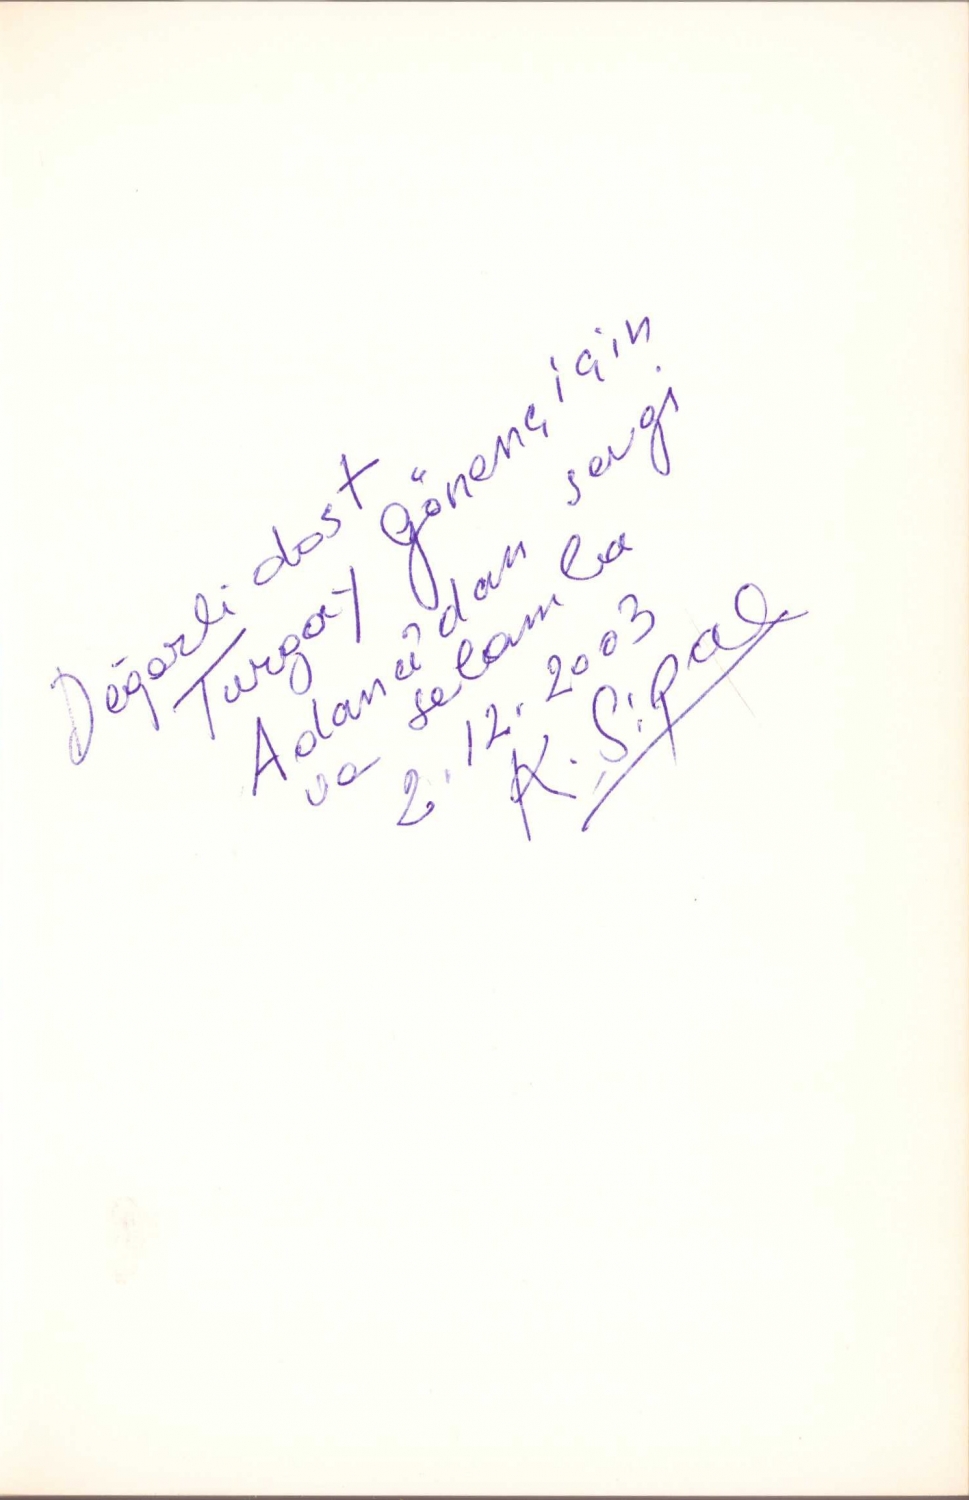 Değerli dost
Turgay Gönenç için
Adana'dan sevgi
ve selamla
2.12.2003
K. Şipal